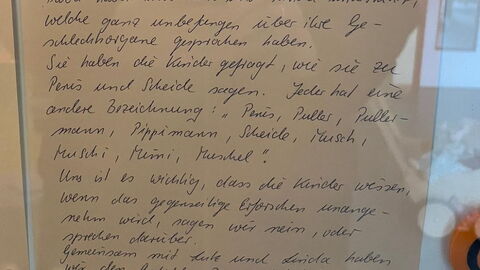 welche ganz unbefangen über ihre Ge-
schlechtsorgane gesprochen haben.
Sie haben die Kinder gefragt, wie sie zu
Penis und Scheide sagen. Jeder hat eine
andere Bezeichnung: "Penis, Puller, Puller-
mann, Pippimann, Scheide, Musch,
Muschi, Mimi, Muschel".
Uns ist es wichtig, dass die Kinder wissen,
wenn das gegenseitige Erforschen unange-
nehm wird, sagen wir nein, oder
sprechen darüber.
Gemeinsam mit und Linda haben
wir den